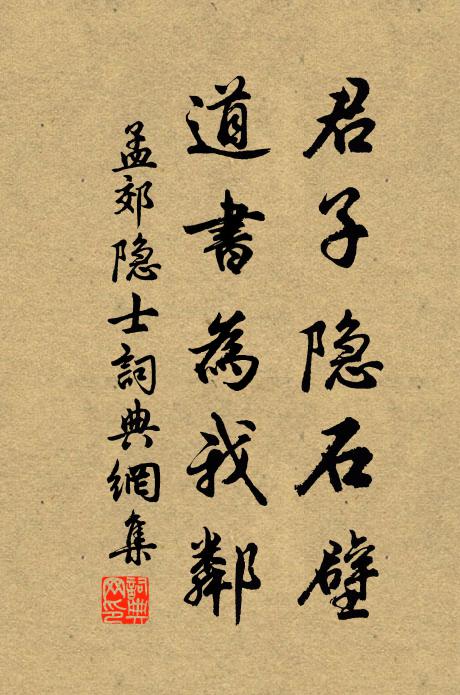 君子隐石壁
道書為我鄰
孟郊隐士詞典網集
詞典網印